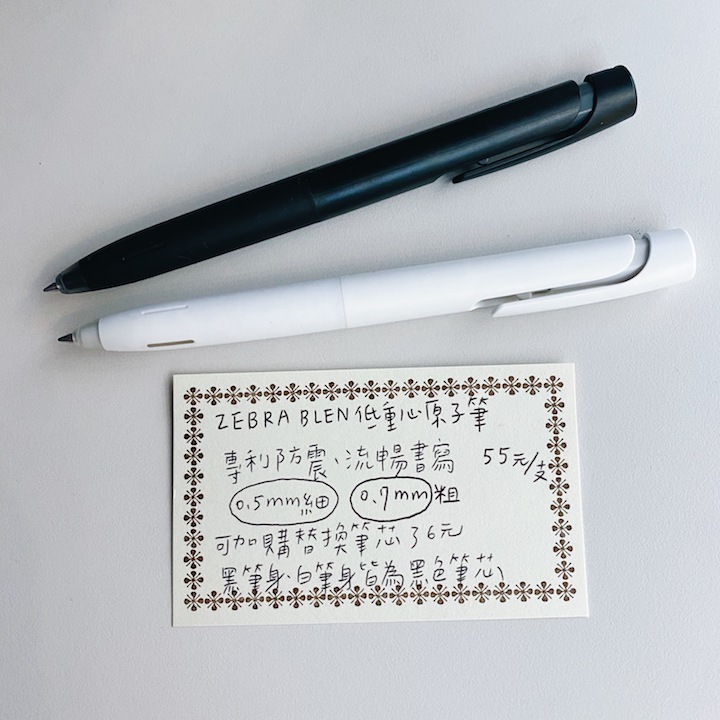 ZEBRA BLEN低重心原子筆
專利防震、流暢書寫 55元/支
0.5mm細 0.7mm粗
可加購替換筆芯36元
黑筆身.白筆身皆為黑色筆芯